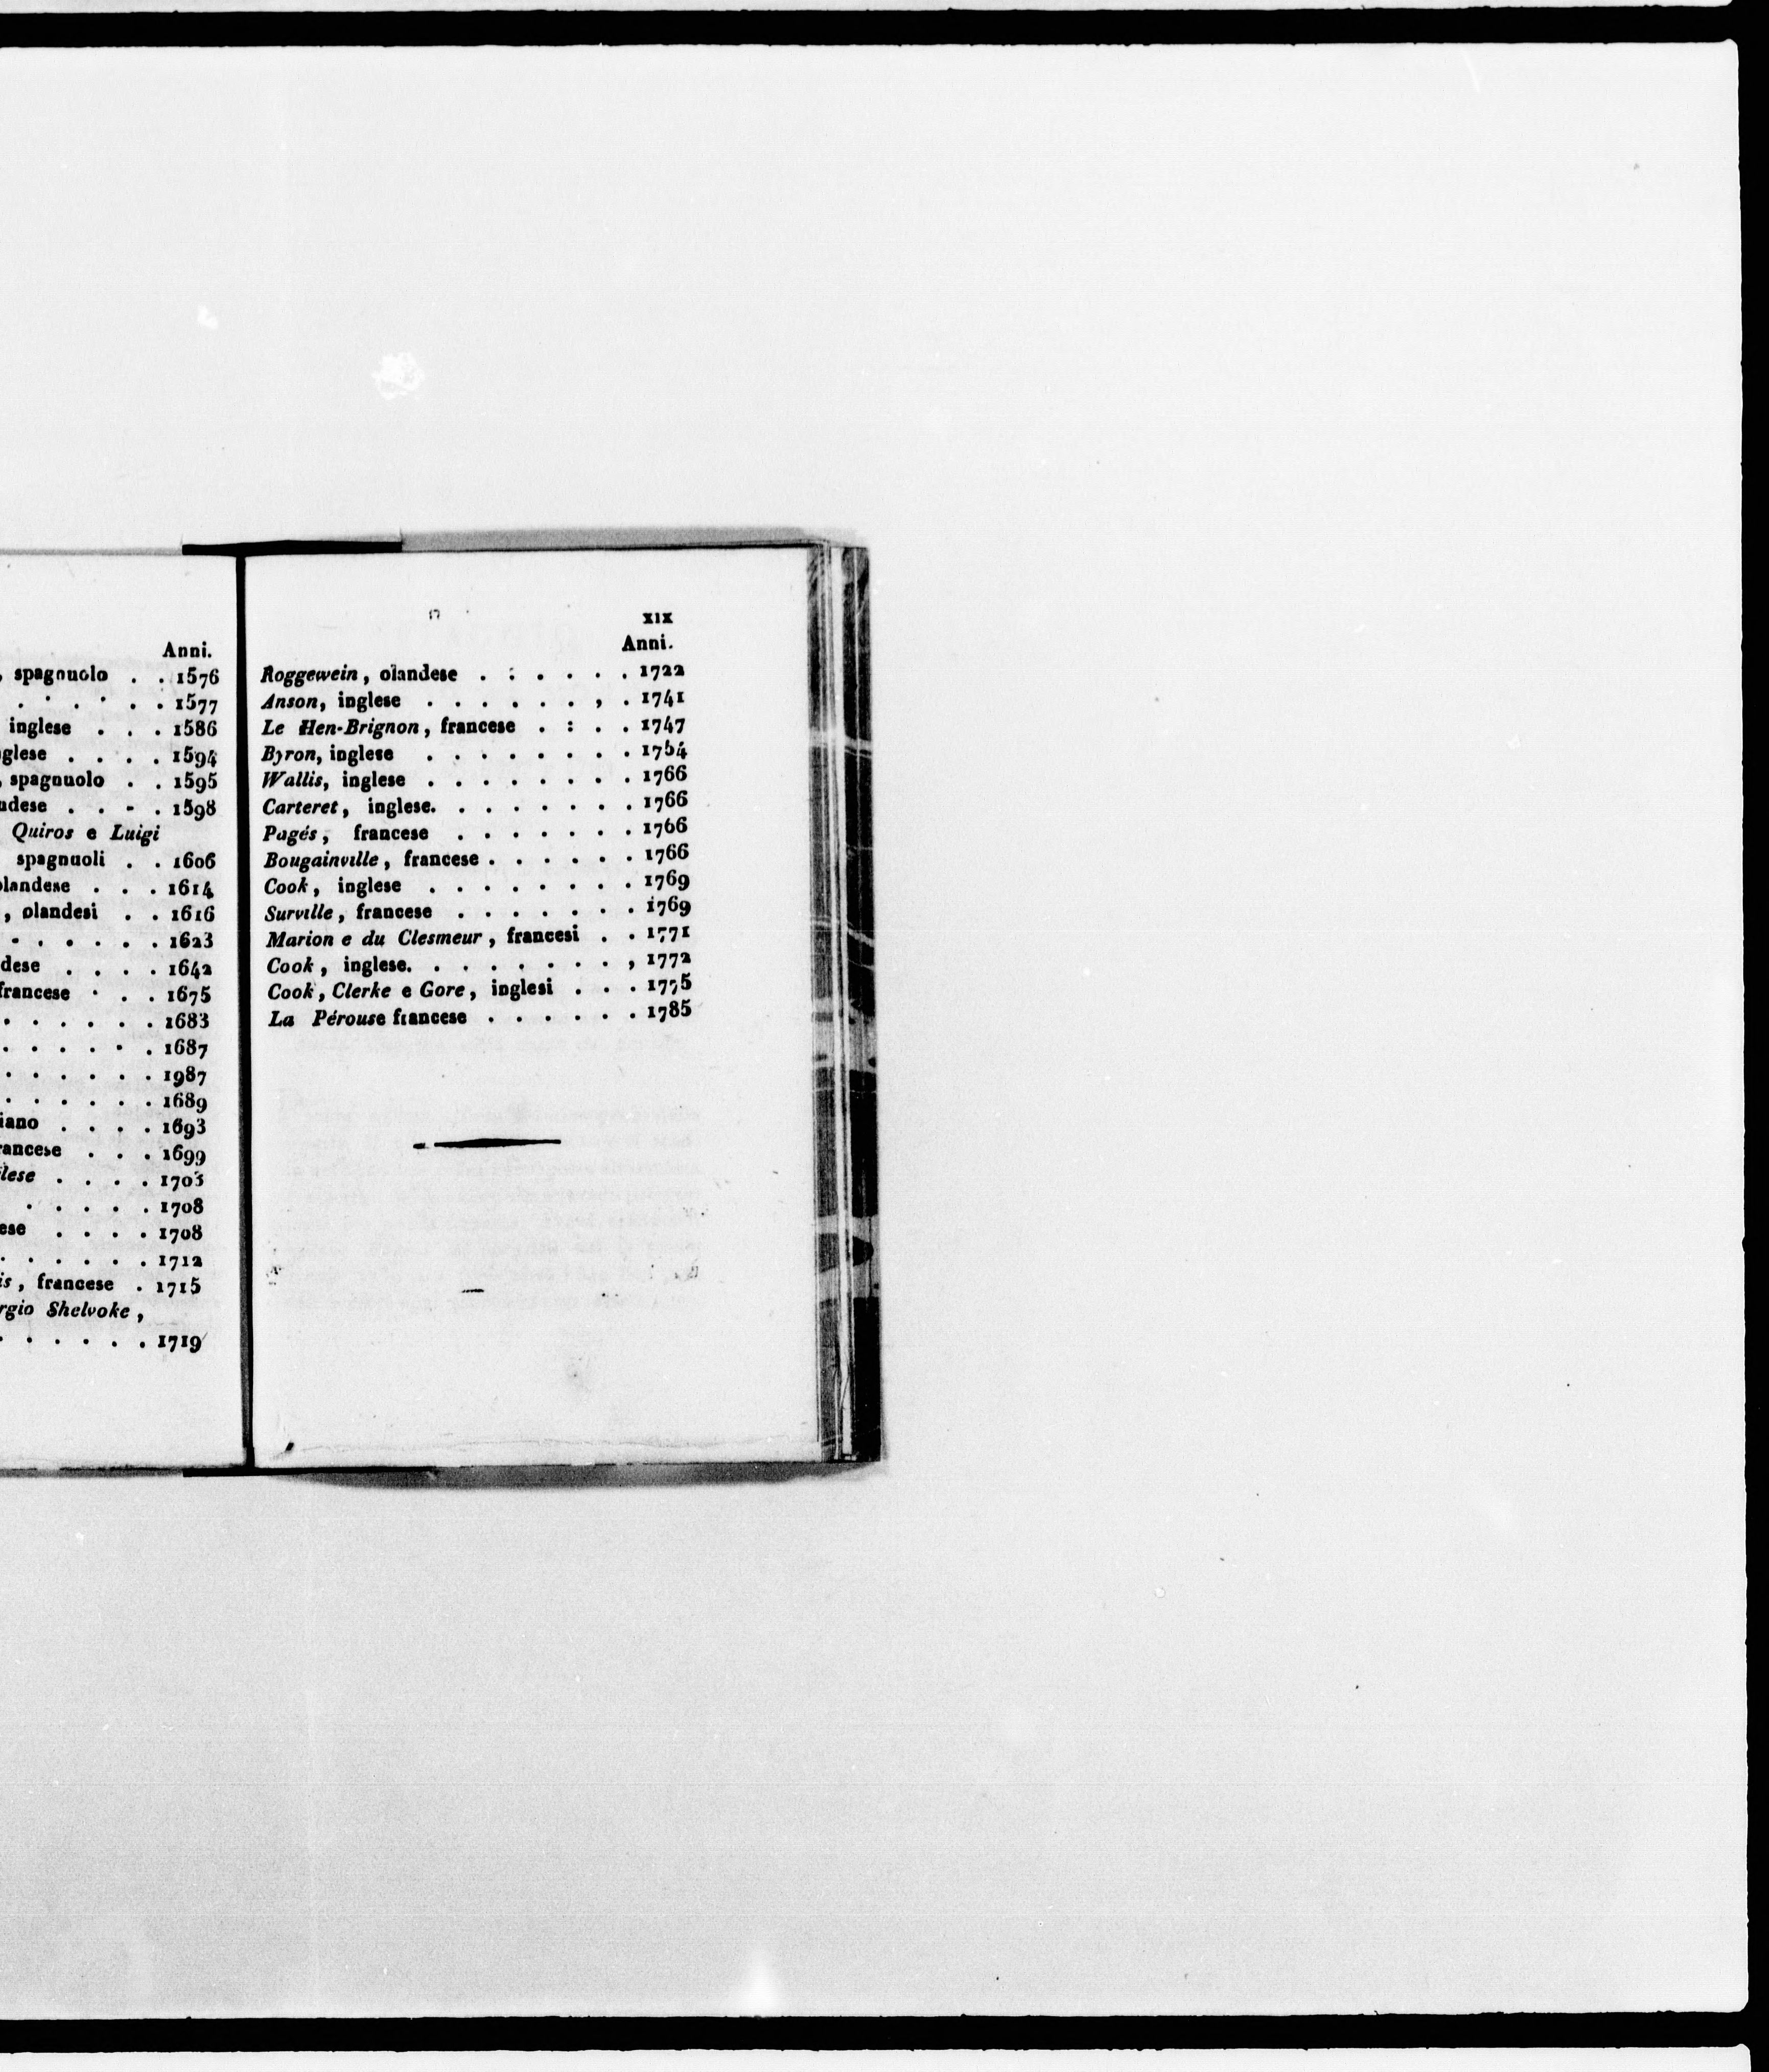 Anni.
, spagnuolo . . 1576
. . . . . . 1577
inglese . . . 1586
glese . . . . 1594
, spagnuolo . . 1595
ndese . . . . 1598
Quiros e Luigi
spagnuoli . . 1606
olandese . . . 1614
, olandesi . . 1616
. . . . . . 1623
dese . . . . 1642
francese . . . 1675
. . . . . . 1683
. . . . . . 1687
. . . . . . 1987
. . . . . . 1689
iano . . . . 1693
rancese . . . 1699
lese . . . . 1703
. . . . . 1708
ese . . . . 1708
. . . . . . 1712
is, francese . 1715
rgio Shelvoke,
. . . . . . 1719
XIX
Anni.
Roggewein, olandese . : . . . . 1722
Anson, inglese . . . . . . , . 1741
Le Hen-Brignon, francese . : . . 1747
Byron, inglese . . . . . . . . 1764
Wallis, inglese . . . . . . . . 1766
Carteret, inglese. . . . . . . . 1766
Pagés, francese . . . . . . . 1766
Bougainville, francese . . . . . . 1766
Cook, inglese . . . . . . . . 1769
Surville, francese . . . . . . . 1769
Marion e du Clesmeur, francesi . . 1771
Cook, inglese. . . . . . . . , 1772
Cook, Clerke e Gore, inglesi . . . 1775
La Pérouse francese . . . . . . 1785